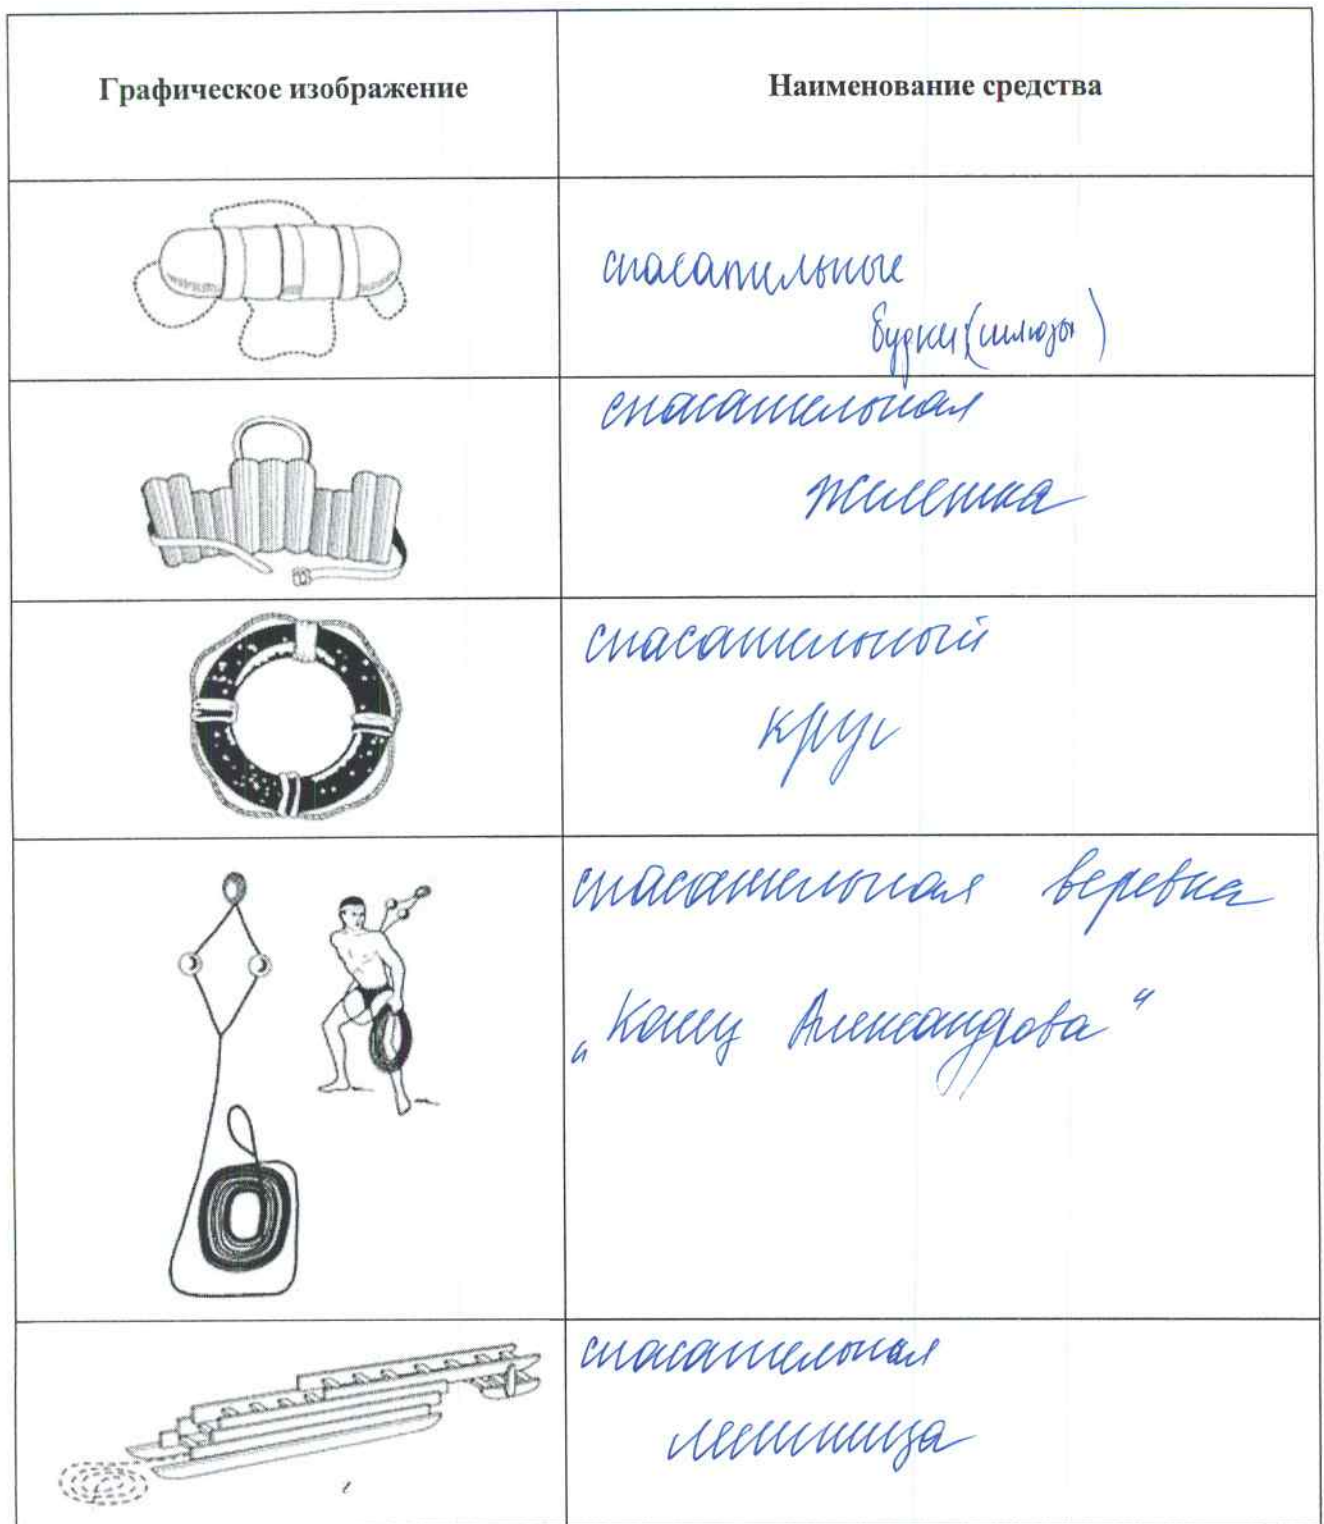 Графическое изображение
Наименование средства
спасательные
будки (шлюзы)
спасательная
жилетка
спасательный
круг
спасательная веревка
„Конец Александрова“
спасательная
лестница